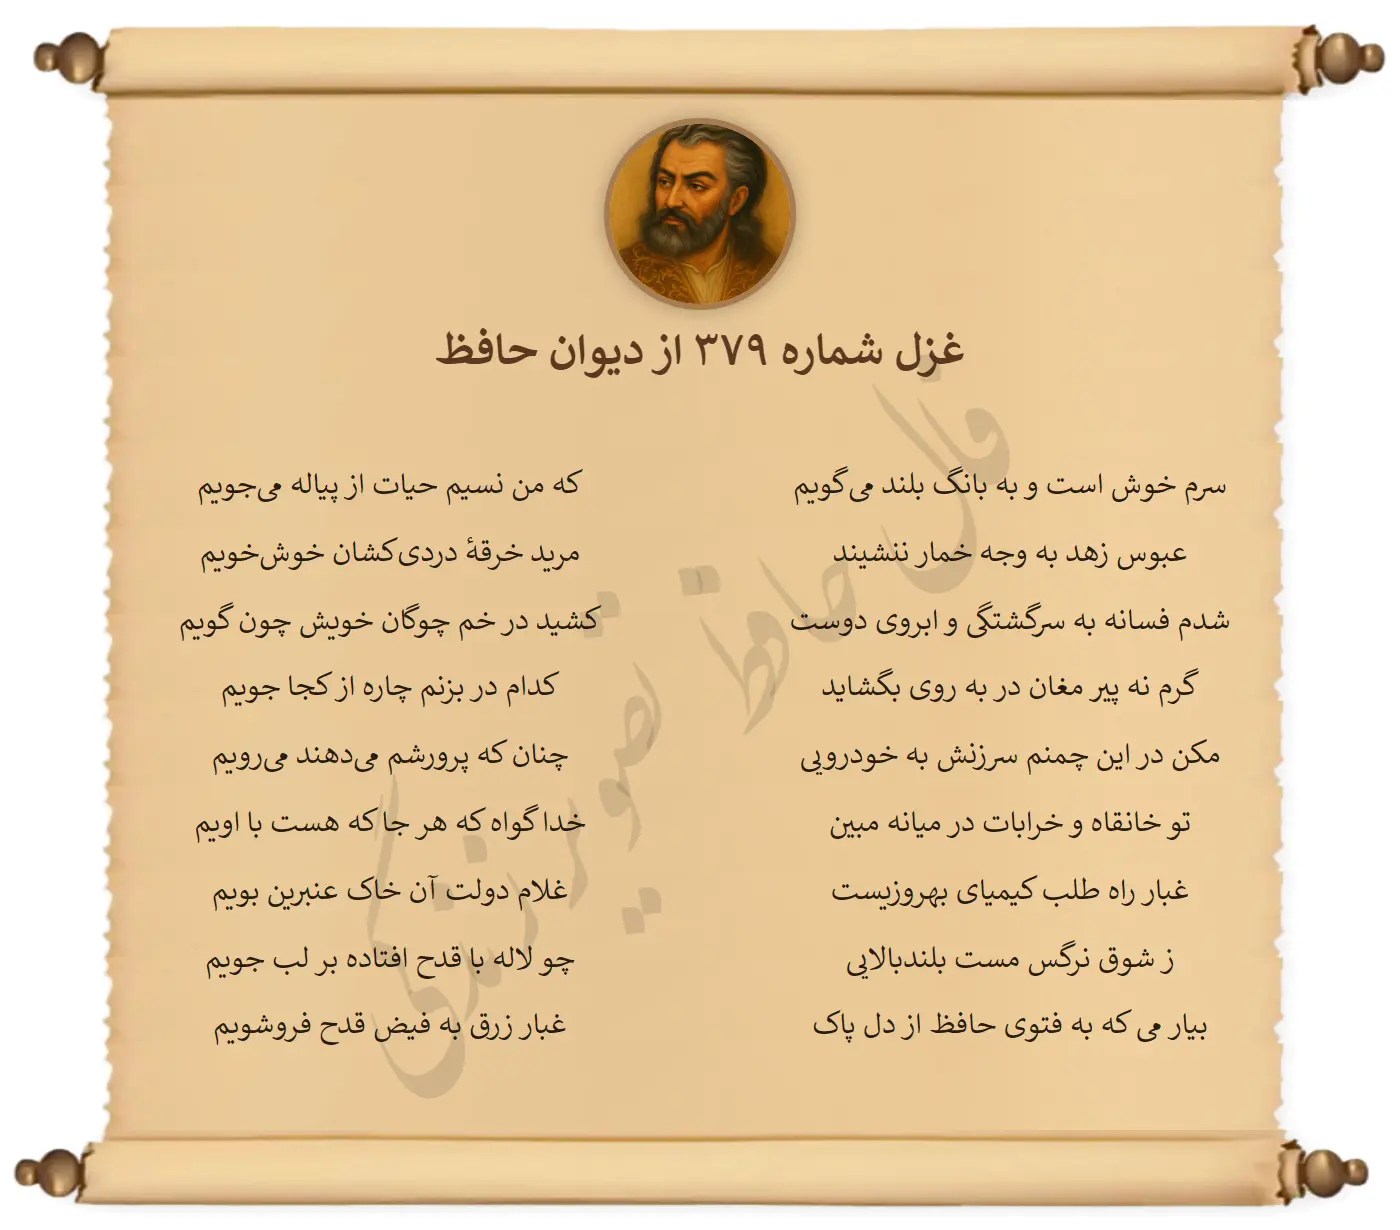 غزل شماره ۳۷۹ از دیوان حافظ
سرم خوش است و به بانگ بلند می‌گویم که من نسیم حیات از پیاله می‌جویم
عبوس زهد به وجه خمار ننشیند مرید خرقهٔ دردی‌کشان خوش‌خویم
شدم فسانه به سرگشتگی و ابروی دوست کشید در خم چوگان خویش چون گویم
گرم نه پیر مغان در به روی بگشاید کدام در بزنم چاره از کجا جویم
مکن در این چمنم سرزنش به خودرویی چنان که پرورشم می‌دهند می‌رویم
تو خانقاه و خرابات در میانه مبین خدا گواه که هر جا که هست با اویم
غبار راه طلب کیمیای بهروزیست غلام دولت آن خاک عنبرین بویم
ز شوق نرگس مست بلندبالایی چو لاله با قدح افتاده بر لب جویم
بیار می که به فتوی حافظ از دل پاک غبار زرق به فیض قدح فروشویم
فال حافظ تصویر زندگی